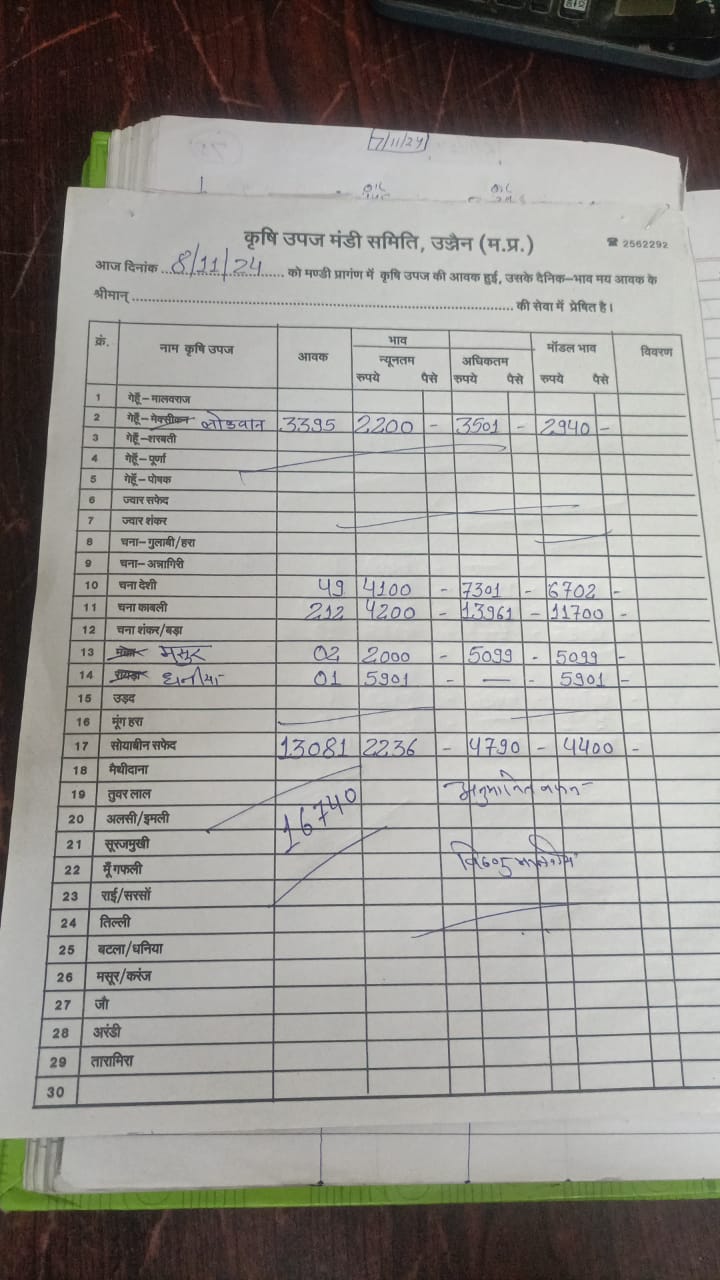 7/11/24
कृषि उपज मंडी समिति, उज्जैन (म.प्र.) ☎ 2562292
आज दिनांक 8/11/24 को मण्डी प्रागंण में कृषि उपज की आवक हुई, उसके दैनिक–भाव मय आवक के
श्रीमान् की सेवा में प्रेषित है।
क्रं. नाम कृषि उपज आवक भाव मॉडल भाव विवरण
न्यूनतम अधिकतम
रुपये पैसे रुपये पैसे रुपये पैसे
1 गेहूँ–मालवराज
2 गेहूँ–मेक्सीकन लोकवान 3395 2200 - 3501 - 2940 -
3 गेहूँ–शरबती
4 गेहूँ–पूर्णा
5 गेहूँ–पोषक
6 ज्वार सफेद
7 ज्वार शंकर
8 चना–गुलाबी/हरा
9 चना–अन्नागिरी
10 चना देशी 49 4100 - 7301 - 6702 -
11 चना काबली 212 4200 - 13961 - 11700 -
12 चना शंकर/बड़ा
13 मसुर 02 2000 - 5099 - 5099 -
14 रायड़ा धनीया 01 5901 - — - 5901 -
15 उड़द
16 मूंग हरा
17 सोयाबीन सफेद 13081 2236 - 4790 - 4400 -
18 मैथीदाना
19 तुवर लाल
20 अलसी/इमली 16740
21 सूरजमुखी
22 मूँगफली
23 राई/सरसों
24 तिल्ली
25 बटला/धनिया
26 मसूर/करंज
27 जौ
28 अरंडी
29 तारामिरा
30